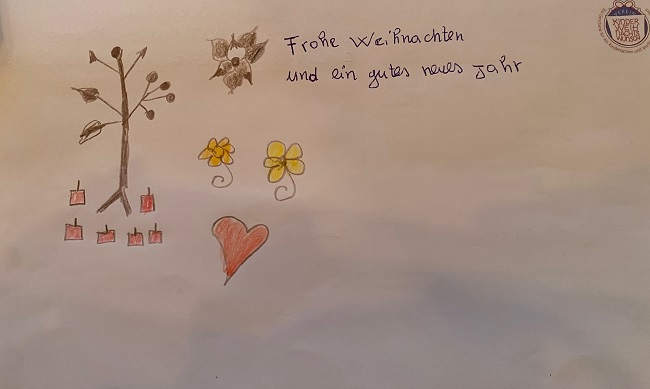 Frohe Weihnachten
und ein gutes neues Jahr
KINDER
WEIH
NACHTS
WUNSCH